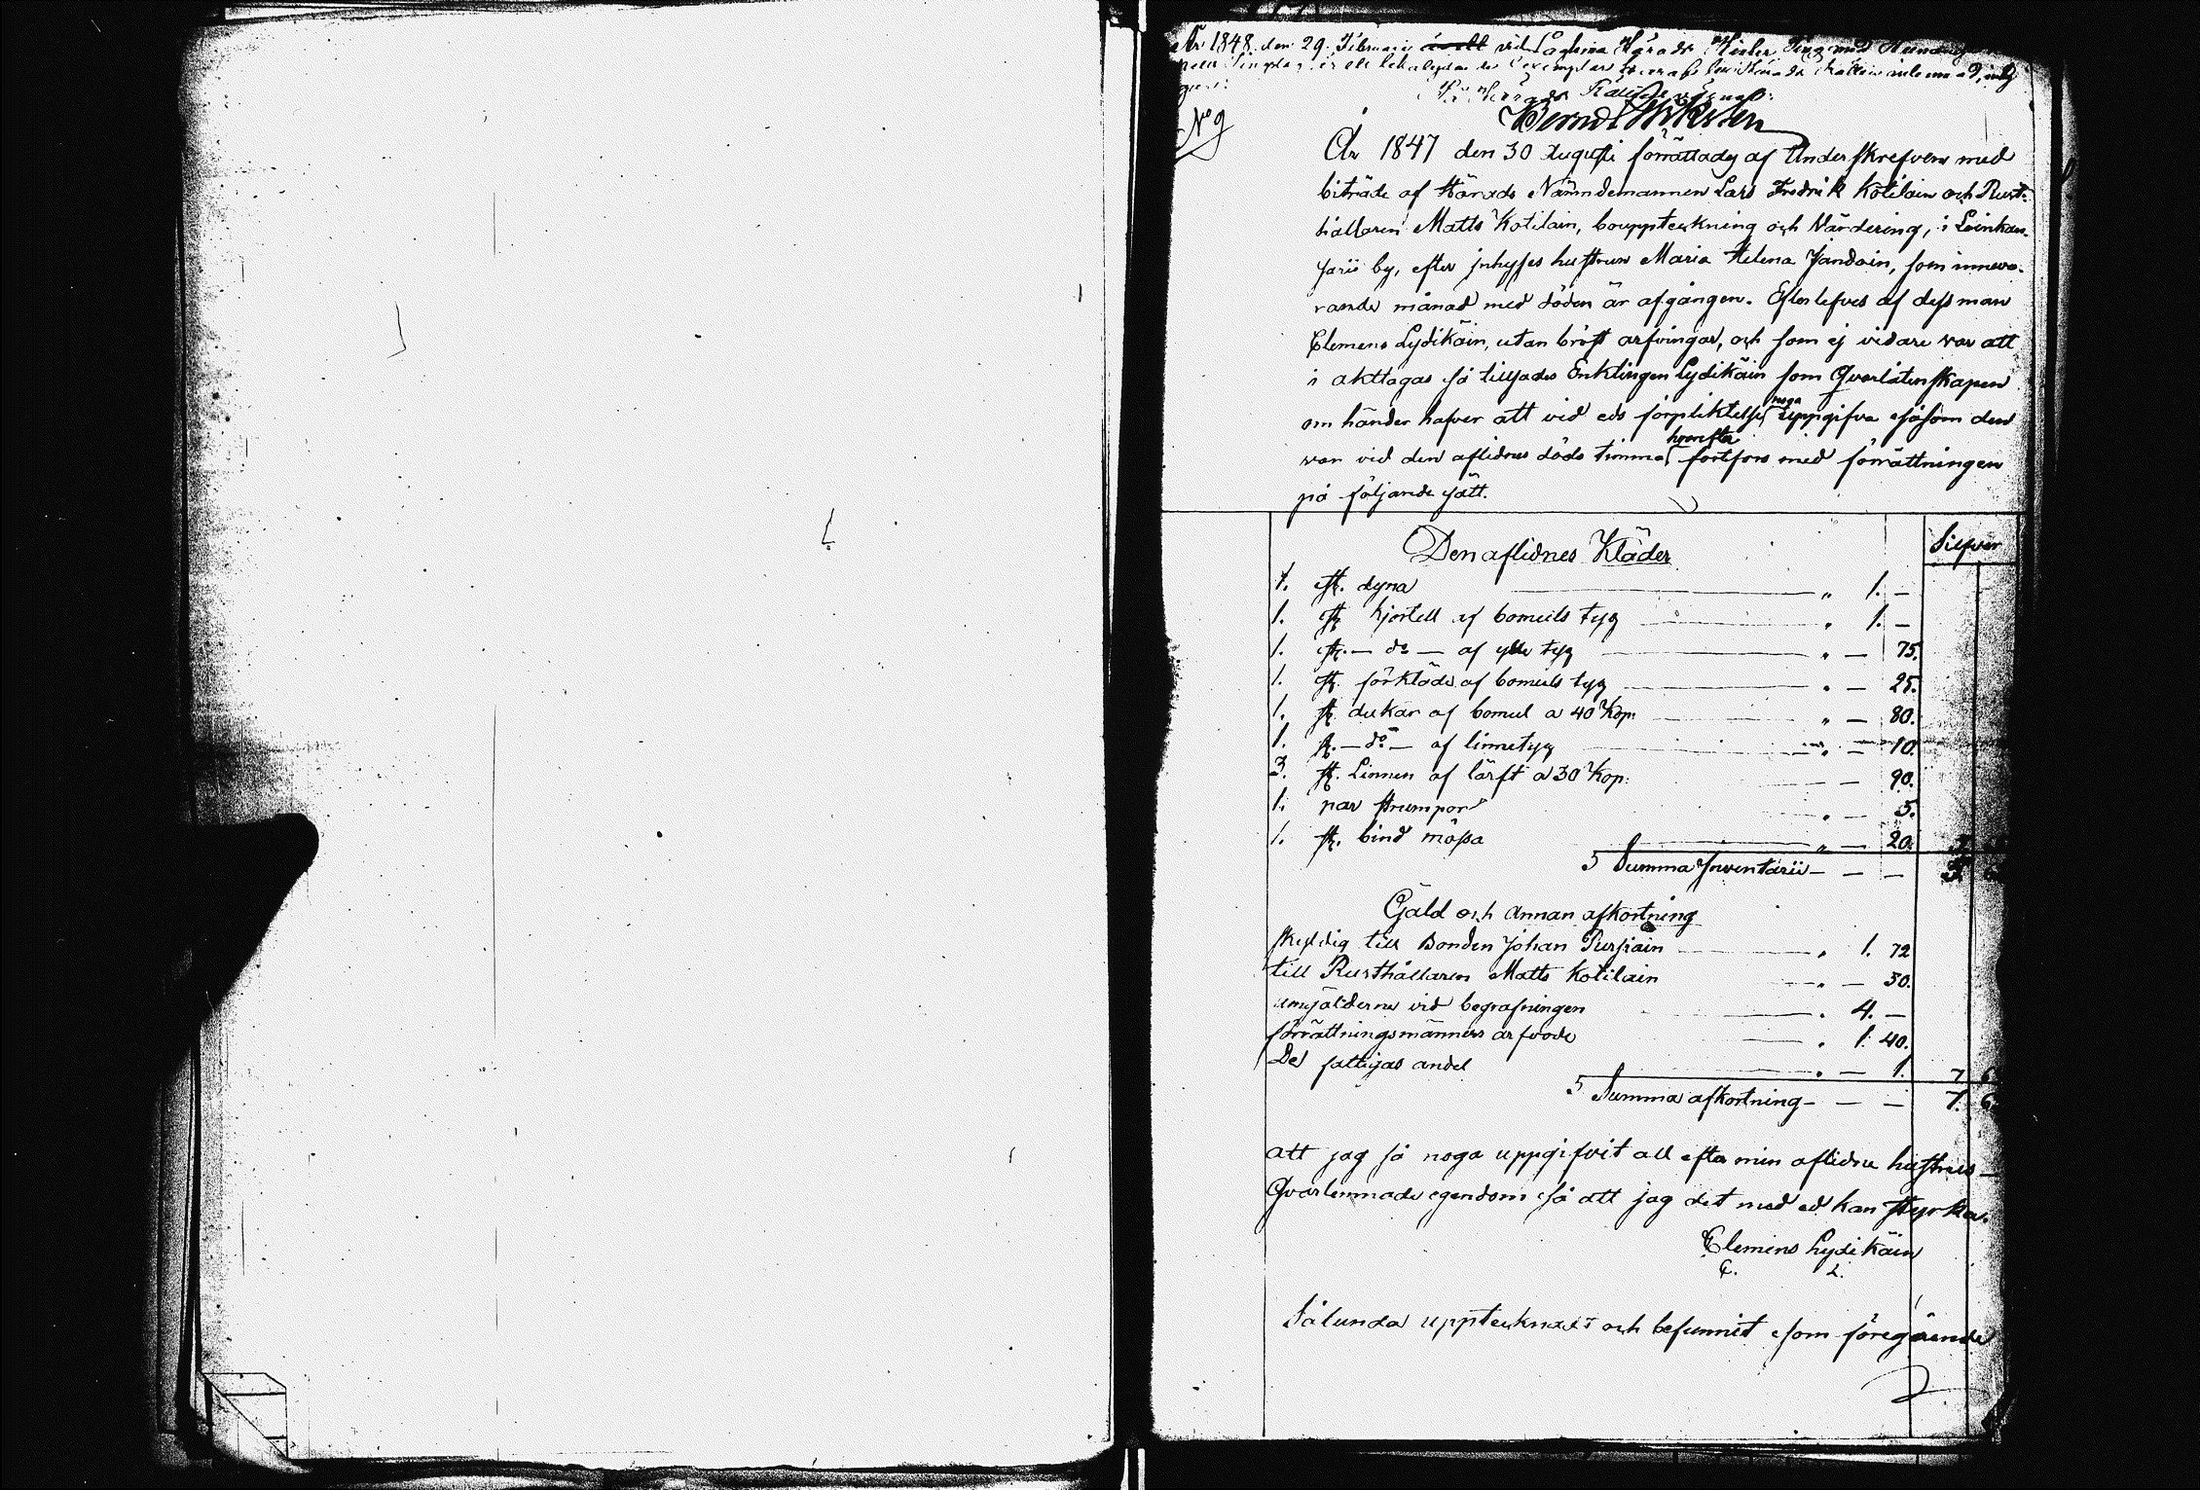 År 1848 den 29 Februarii vid Lagtima Härads Vinter Ting med
N:o 9
År 1847 den 30 Augusti förrättades af Underskrefven med
biträde af Härads Nämndemannen Lars Fredrik Kotilain och Rust-
hållaren Matts Kotilain, bouppteckning och Värdering, i Leinkan-
jarii by, efter jnhyses hustrun Maria Helena Jandain, som inneva-
rande månad med döden är afgången. Efterlefves af dess man
Clemens Lydikäin, utan bröst arfvingar, och som ej vidare var att
i akttagas så tillsades Enklingen Lydikäin som Qvarlåtenskapen
om händer hafver att vid eds förpliktelse noga uppgifva såsom den
var vid den aflidnes döds timma hvarefter fortfors med förrättningen
på följande sätt.
Silfver
Den aflidnes Kläder
1. st. dyna — " 1. —
1. st kjortell af bomuls tyg — " 1. —
1. st. — do — af ylle tyg — " — 75.
1. st. förkläde af bomuls tyg — " — 25.
1. st dukar af bomul a 40 Kop: — " — 80.
1. st. — do — af linnetyg — " — 10.
3. st. Linnen af lärft a 30 Kop: — — 90.
1. par strumpor — " — 5.
1. st. bind mössa — " — 20.
Summa Inventarii — — — 5
Gäld och annan afkortning
skyldig till Bonden Johan Pursiain — " 1. 72
till Rusthållaren Matts Kotilain — " — 30.
umgälderne vid begrafningen — " 4. —
förrättningsmänners arfvode — " 1. 40.
De fattigas andel — " — 1. 7 6
Summa afkortning — — — 7. 6
att jag så noga uppgifvit all efter min aflidne hustrus
Qvarlemnade egendom så att jag det med ed kan styrka.
Clemens Lydikäin
C. L.
Sålunda upptecknadt och befunnit som föregående